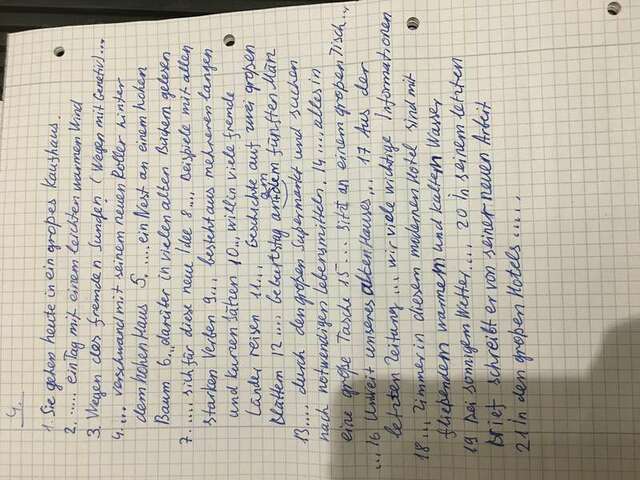 4.
1. Sie gehen heute in ein großes Kaufhaus.
2. ..... ein Tag mit einem leichten warmen Wind
3. Wegen des fremden Jungen (Wegen mit Genetiv)...
4.... verschwand mit seinem neuen Roller hinter
dem hohen Haus 5. .... ein Nest an einem hohen
Baum 6... darüter in vielen alten Büchern gelesen
7. .... sich für diese neue Idee 8... Beispiele mit allen
starken Verben 9... besteht aus mehreren langen
und kurzen Sätzen 10... will in viele fremde
Länder reisen 11... Geschichte auf zwei großen
Blättern 12.... Geburtstag am dem fünften März
13.... durch den großen Supermarkt und suchen
nach notwendigen Lebensmitteln. 14....alles in
eine große Tasche 15.... sitzt an einem großen Tisch...
...16 Unweit unseres alten Hauses... 17 Aus der
letzten Zeitung ... wir viele wichtige Informationen
18... Zimmer in diesem modernen Hotel sind mit
fließendem warmem und kaltem Wasser
19 Bei sonnigem Wetter.... 20 in seinem letzten
Brief schreibt er von seiner neuen Arbeit
21 in den großen Hotels .....